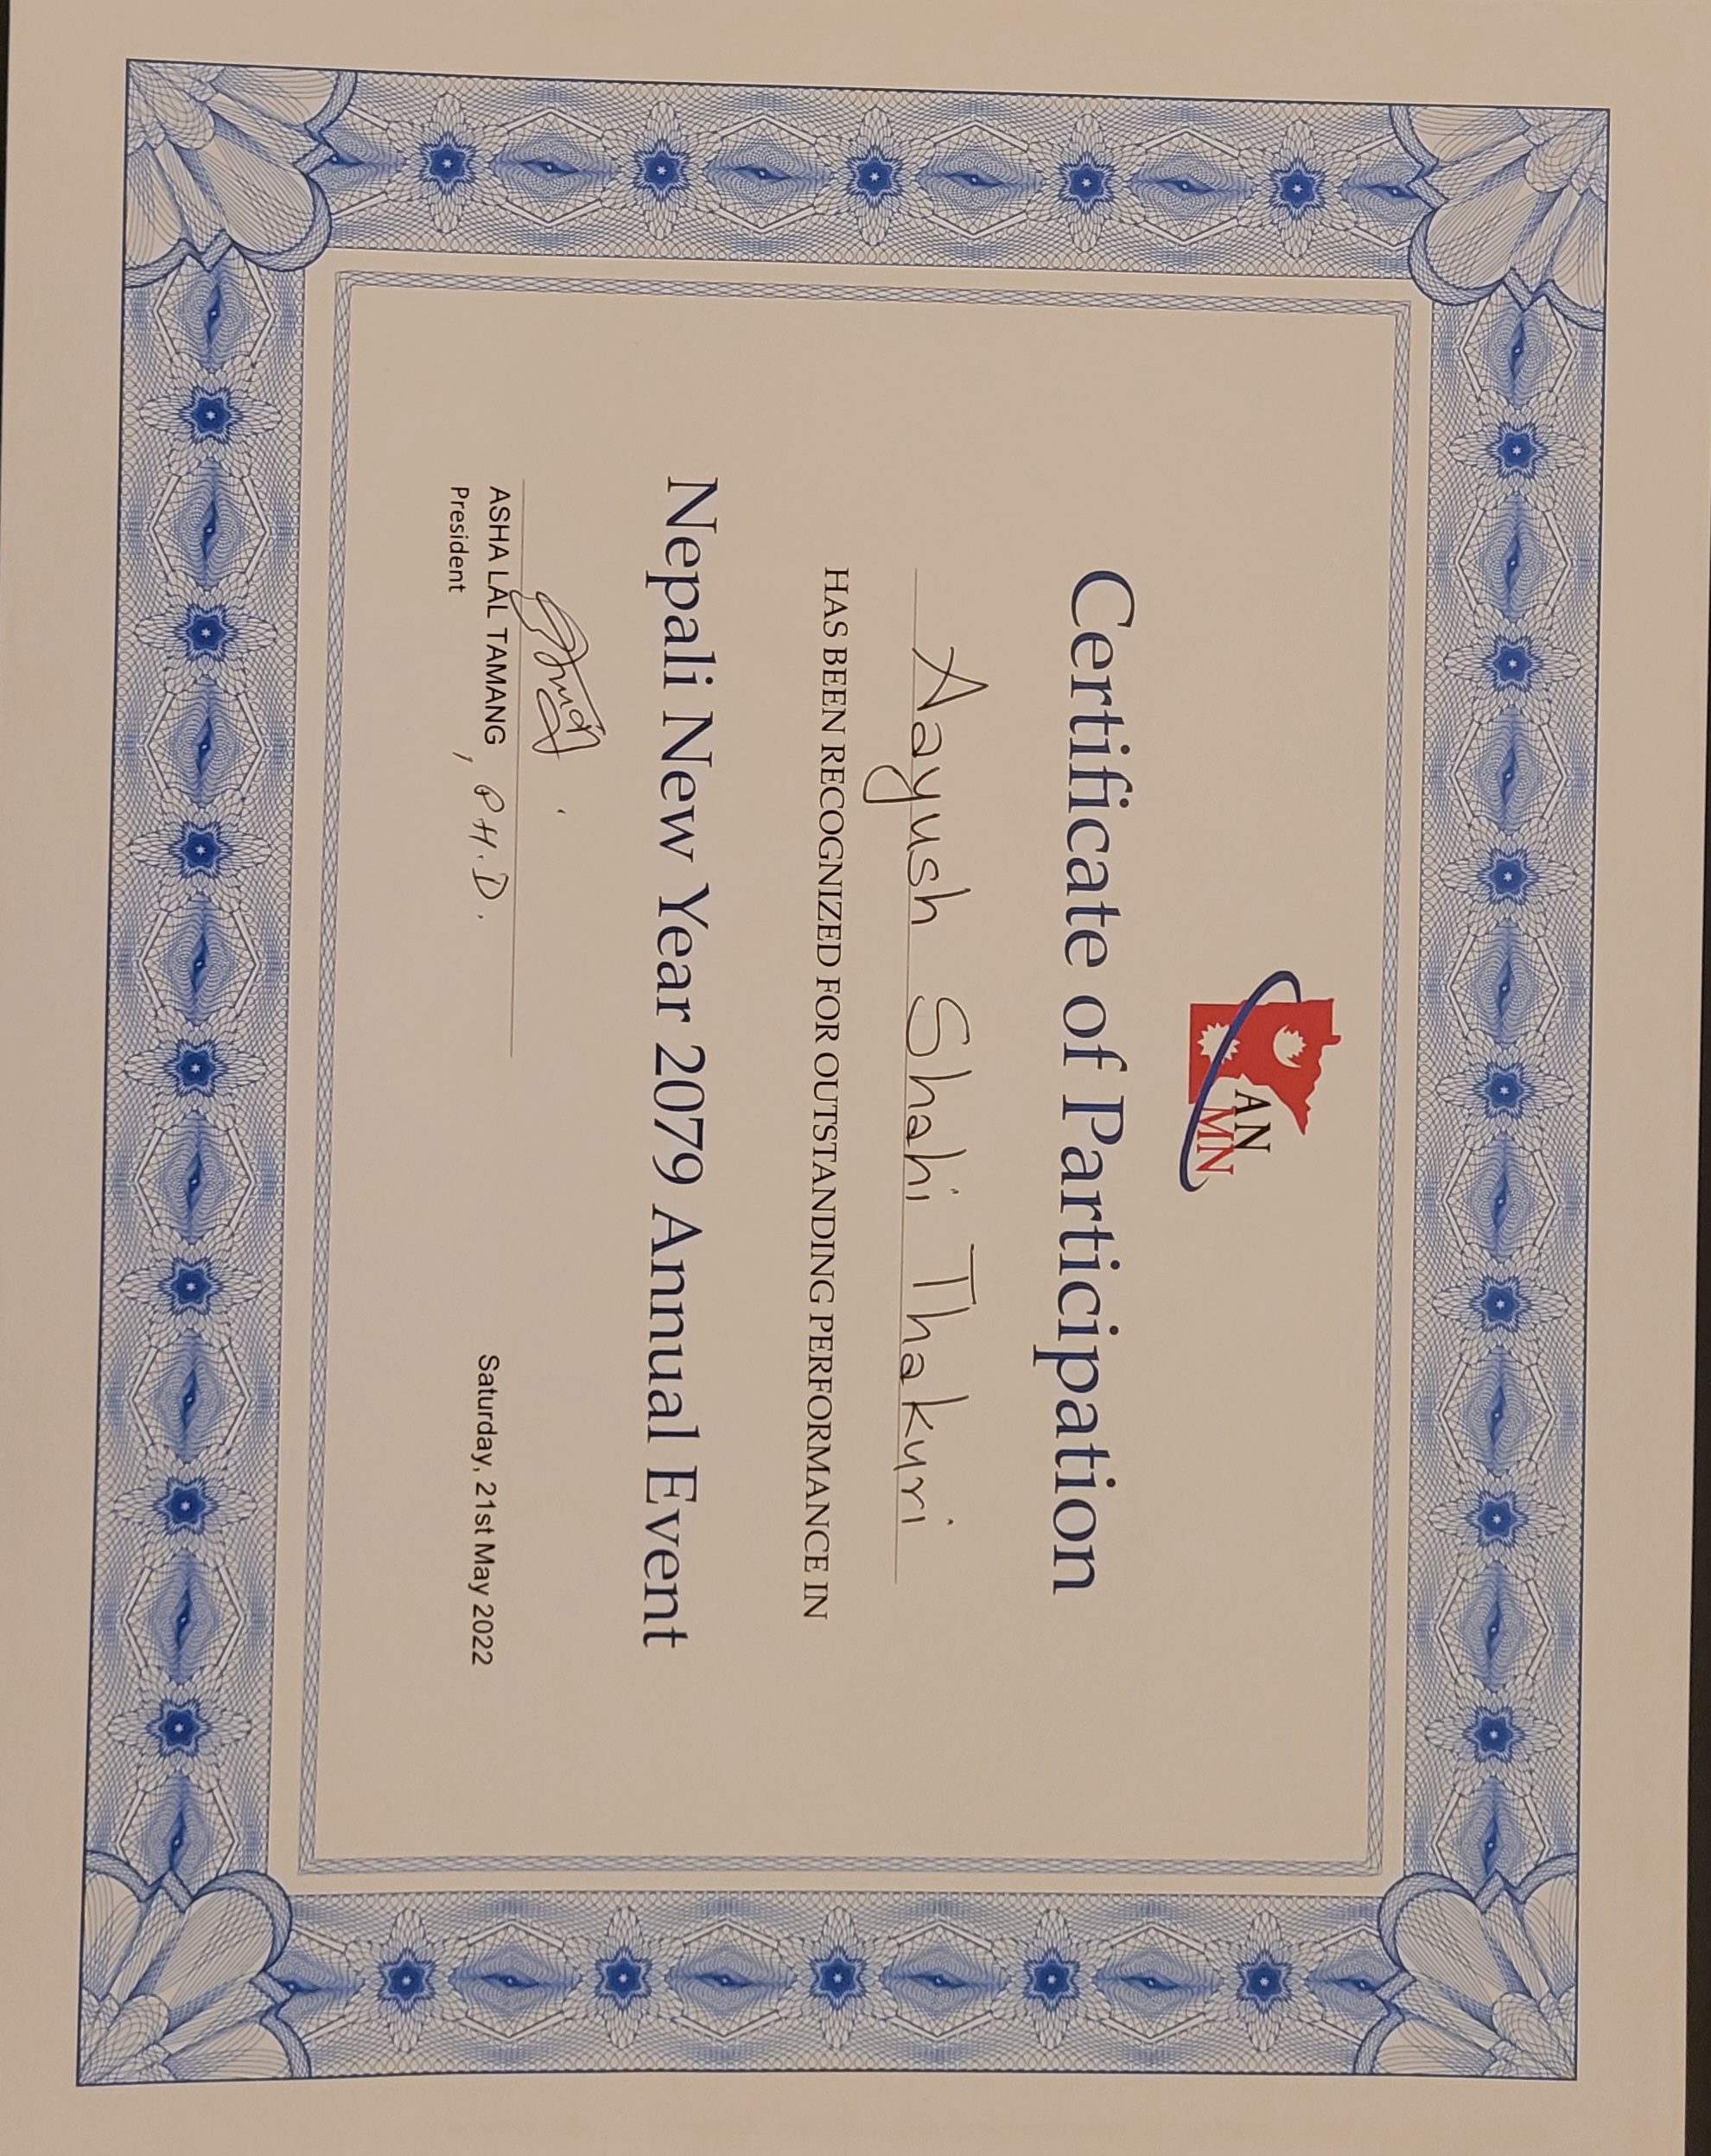 AN
MN
Certificate of Participation
Aayush Shahi Thakuri
HAS BEEN RECOGNIZED FOR OUTSTANDING PERFORMANCE IN
Nepali New Year 2079 Annual Event
ASHA LAL TAMANG, PH.D.
President
Saturday, 21st May 2022